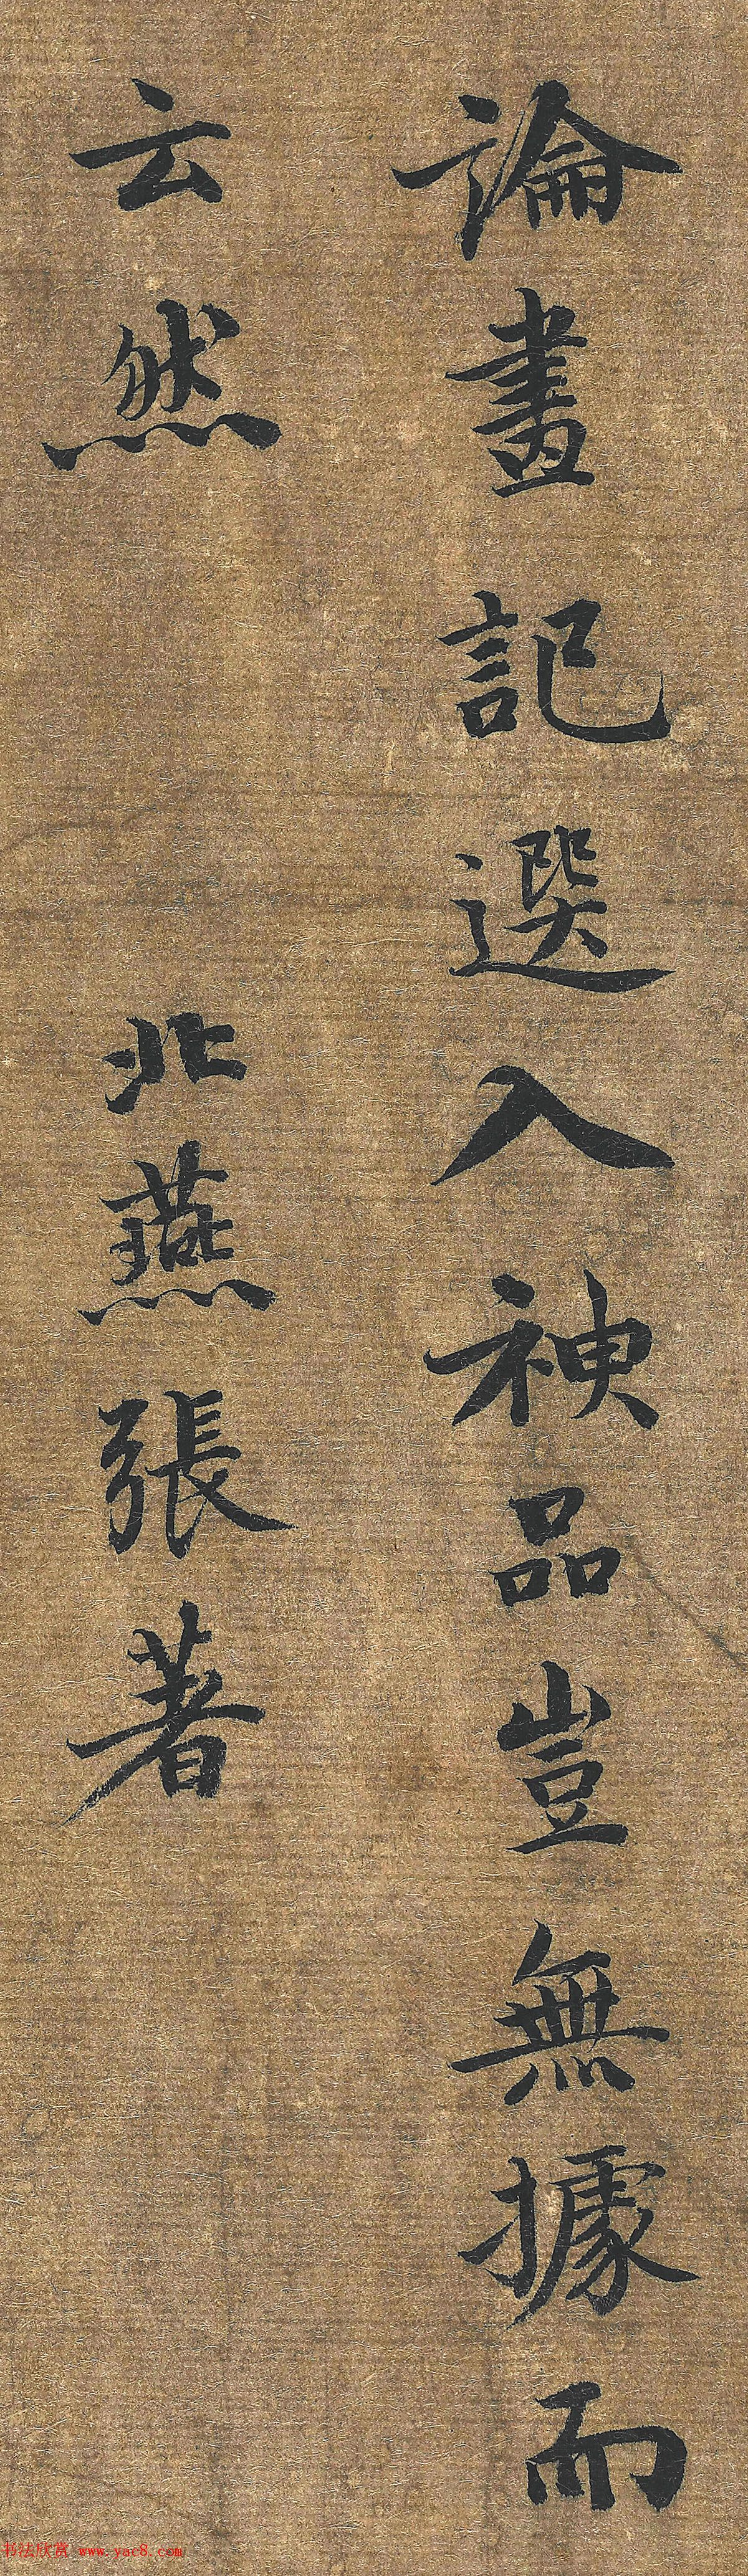 論畫記選入神品豈無據而
云然　北燕張著
书法欣赏 www.yac8.com